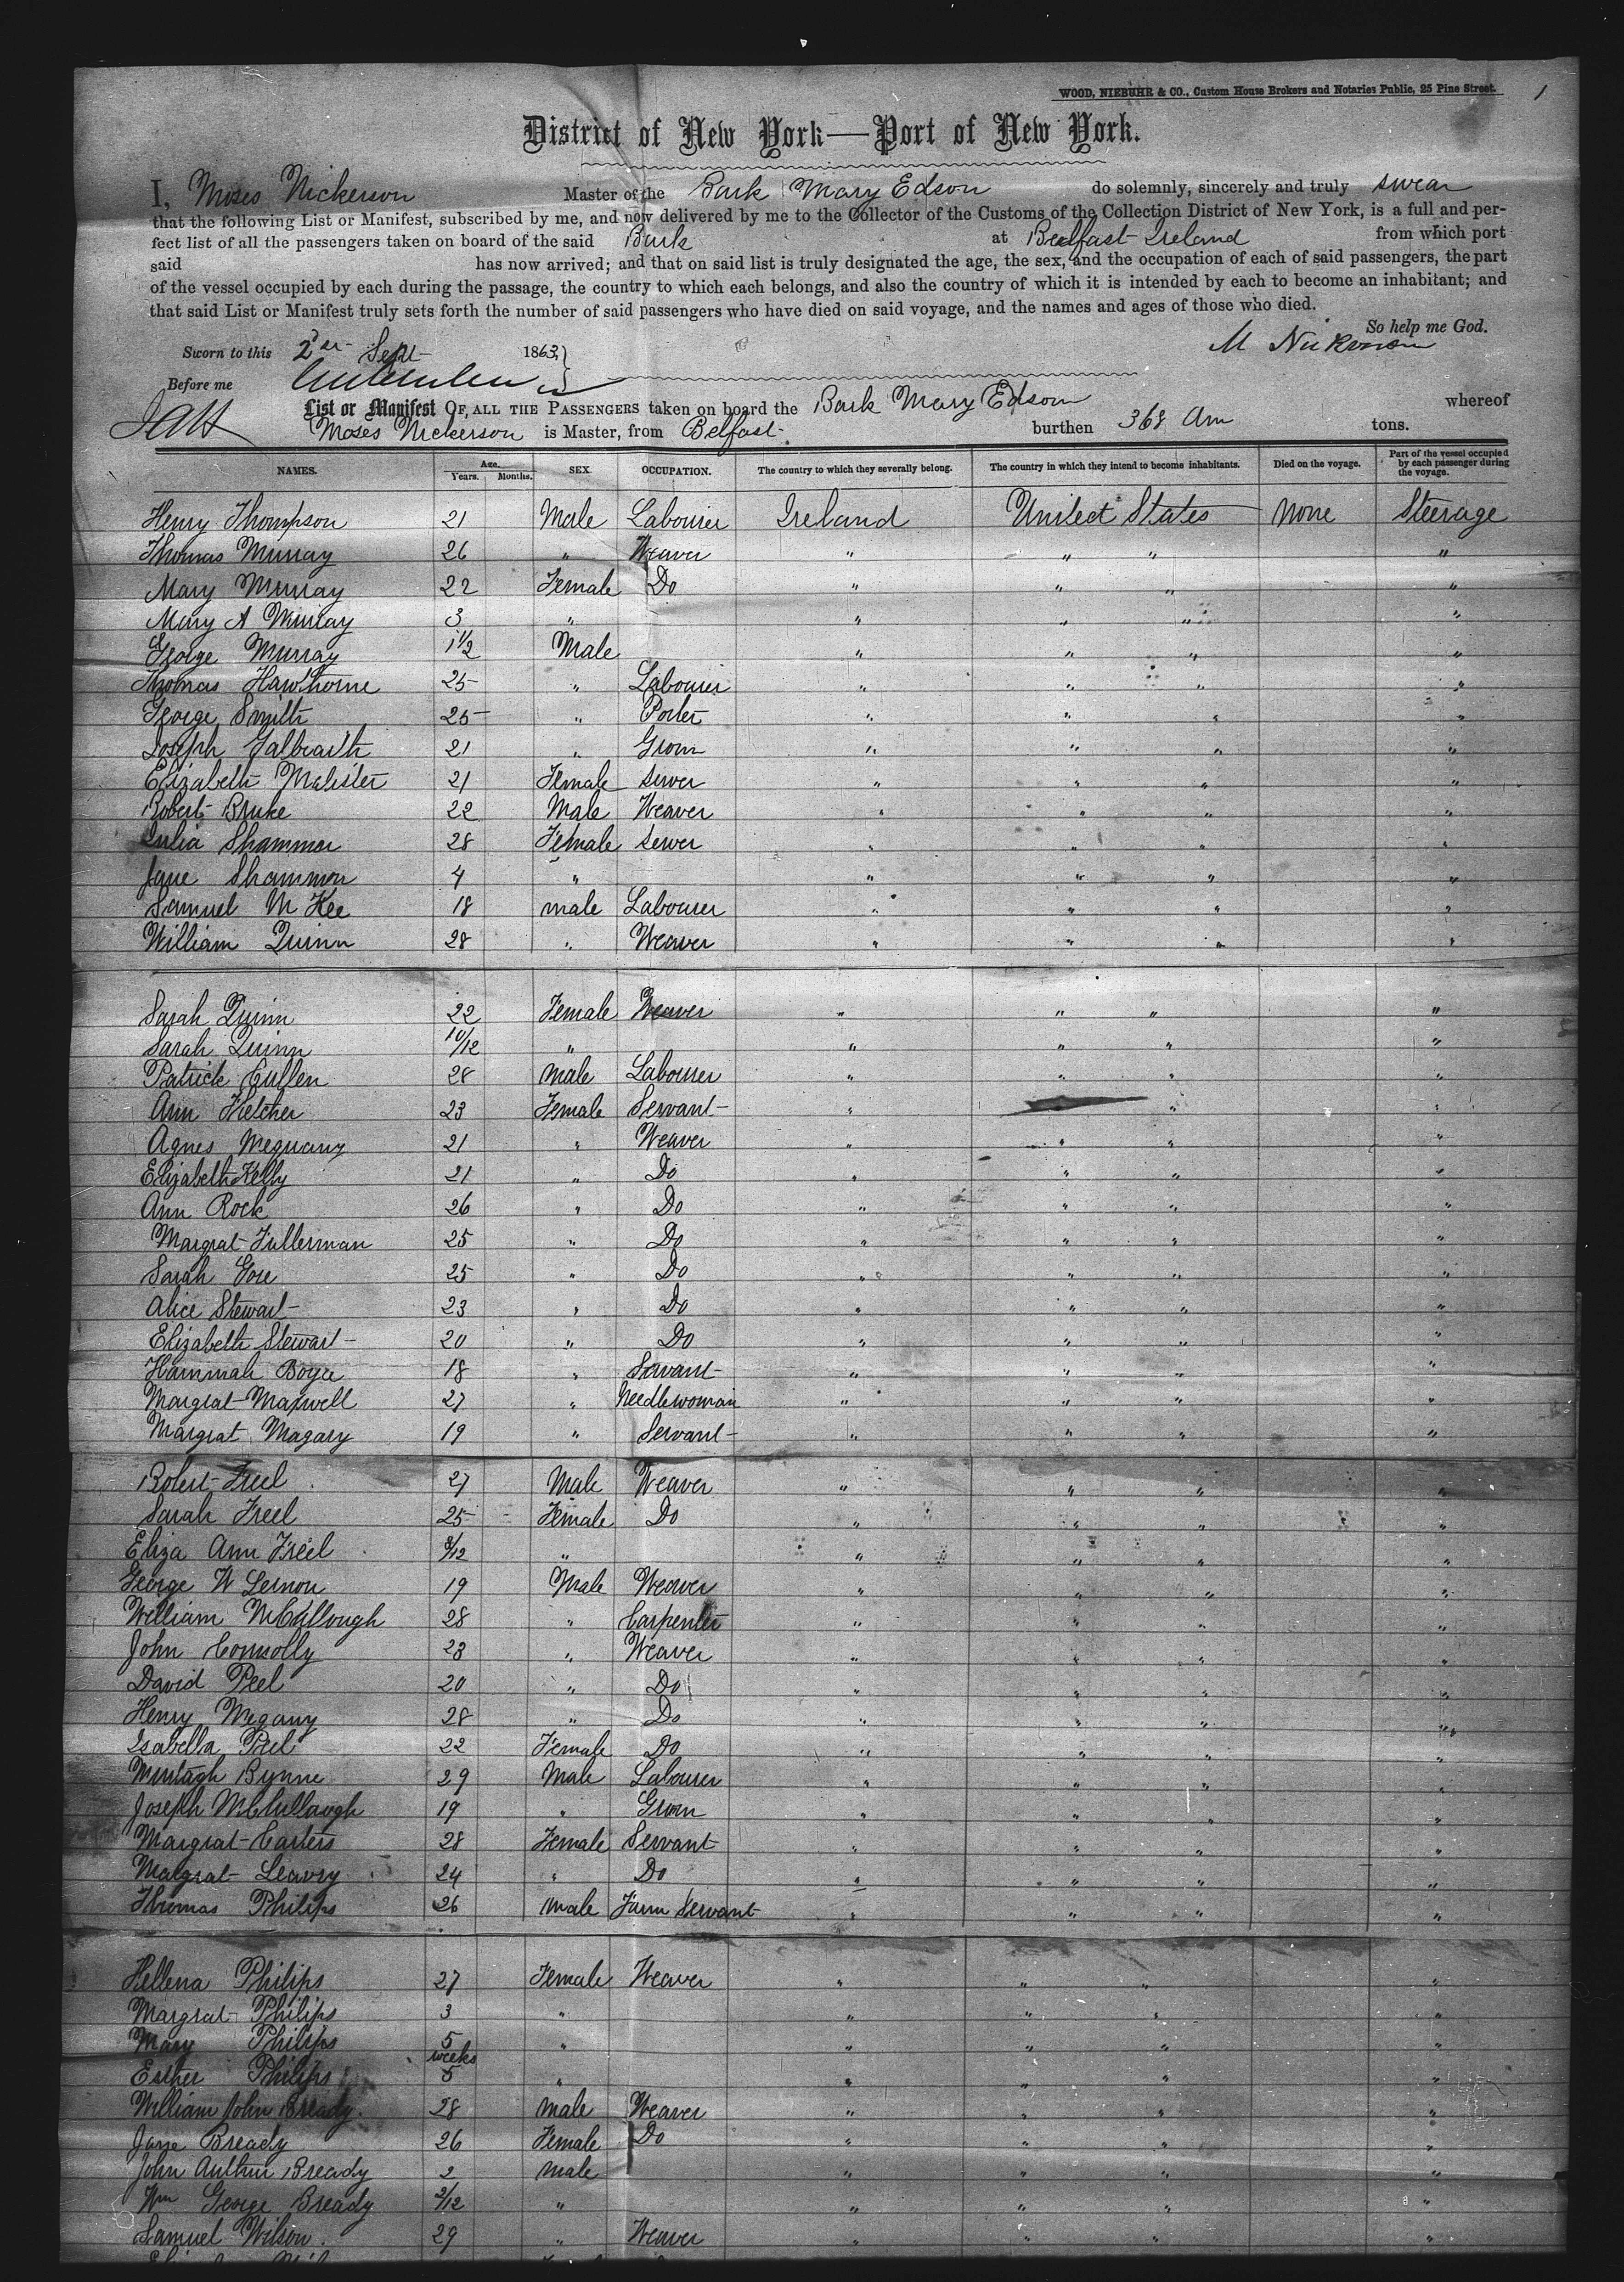 WOOD, NIEBUHR & CO., Custom House Brokers and Notaries Public, 25 Pine Street. 1
District of New York—Port of New York.
I, Moses Nickerson Master of the Bark Mary Edson do solemnly, sincerely and truly swear
that the following List or Manifest, subscribed by me, and now delivered by me to the Collector of the Customs of the Collection District of New York, is a full and per-
fect list of all the passengers taken on board of the said Bark at Belfast Ireland from which port
said has now arrived; and that on said list is truly designated the age, the sex, and the occupation of each of said passengers, the part
of the vessel occupied by each during the passage, the country to which each belongs, and also the country of which it is intended by each to become an inhabitant; and
that said List or Manifest truly sets forth the number of said passengers who have died on said voyage, and the names and ages of those who died.
So help me God.
Sworn to this 2 Sept 1863 M Nickerson
Before me
List or Manifest OF ALL THE PASSENGERS taken on board the Bark Mary Edson whereof
Moses Nickerson is Master, from Belfast burthen 368 tons.
NAMES. Age. Years. Months. SEX. OCCUPATION. The country to which they severally belong. The country in which they intend to become inhabitants. Died on the voyage. Part of the vessel occupied by each passenger during the voyage.
Henry Thompson 21 Male Labourer Ireland United States None Steerage
Thomas Murray 26 " Weaver " " " "
Mary Murray 22 Female Do " " " "
Mary A Murray 3 " " " " "
George Murray 1 1/2 Male " " " "
Thomas Hawthorne 25 " Labourer " " " "
George Smith 25 " Porter " " " "
Joseph Galbraith 21 " Grom " " " "
Elizabeth Malister 21 Female Sewer " " " "
Robert Bruke 22 Male Weaver " " " "
Julia Shammon 28 Female Sewer " " " "
Jane Shammon 4 " " " " "
Samuel McKee 18 male Labourer " " " "
William Quinn 28 " Weaver " " " "
Sarah Quinn 22 Female Weaver " " " "
Sarah Quinn 10/12 " " " " "
Patrick Cullen 28 male Labourer " " " "
Ann Fletcher 23 Female Servant " " "
Agnes 21 " Weaver " " " "
Elizabeth Kelly 21 " Do " " " "
Ann Rock 26 " Do " " " "
Margrat Fullerman 25 " Do " " " "
Sarah Gore 25 " Do " " " "
Alice Stewart 23 " Do " " " "
Elizabeth Stewart 20 " Do " " " "
Hammah Boyce 18 " Servant " " " "
Margrat Maxwell 27 " Needlewoman " " " "
Margrat Magary 19 " Servant " " " "
Robert Freel 27 Male Weaver " " " "
Sarah Freel 25 Female Do " " " "
Eliza Ann Freel 8/12 " " " " "
George W Lernon 19 Male Weaver " " " "
William McCullough 28 " Carpenter " " " "
John Connolly 23 " Weaver " " " "
David Peel 20 " Do " " " "
Henry Megany 28 " Do " " " "
Isabella Peel 22 Female Do " " " "
Murtagh Bynne 29 Male Labourer " " " "
Joseph McCullaugh 19 " Grom " " " "
Margrat Carters 28 Female Servant " " " "
Malgrat Leavry 24 " Do " " " "
Thomas Philips 26 male Farm Servant " " " "
Hellena Philips 27 Female Weaver " " " "
Margrat Philips 3 " " " " "
Mary Philips 5 " " " " "
Esther Philips weeks 5 " " " " "
William John Bready 28 male Weaver " " " "
Jane Bready 26 Female Do " " " "
John Authur Bready 2 male " " " "
Wm George Bready 2/12 " " " " "
Samuel Wilson 29 " Weaver " " " "